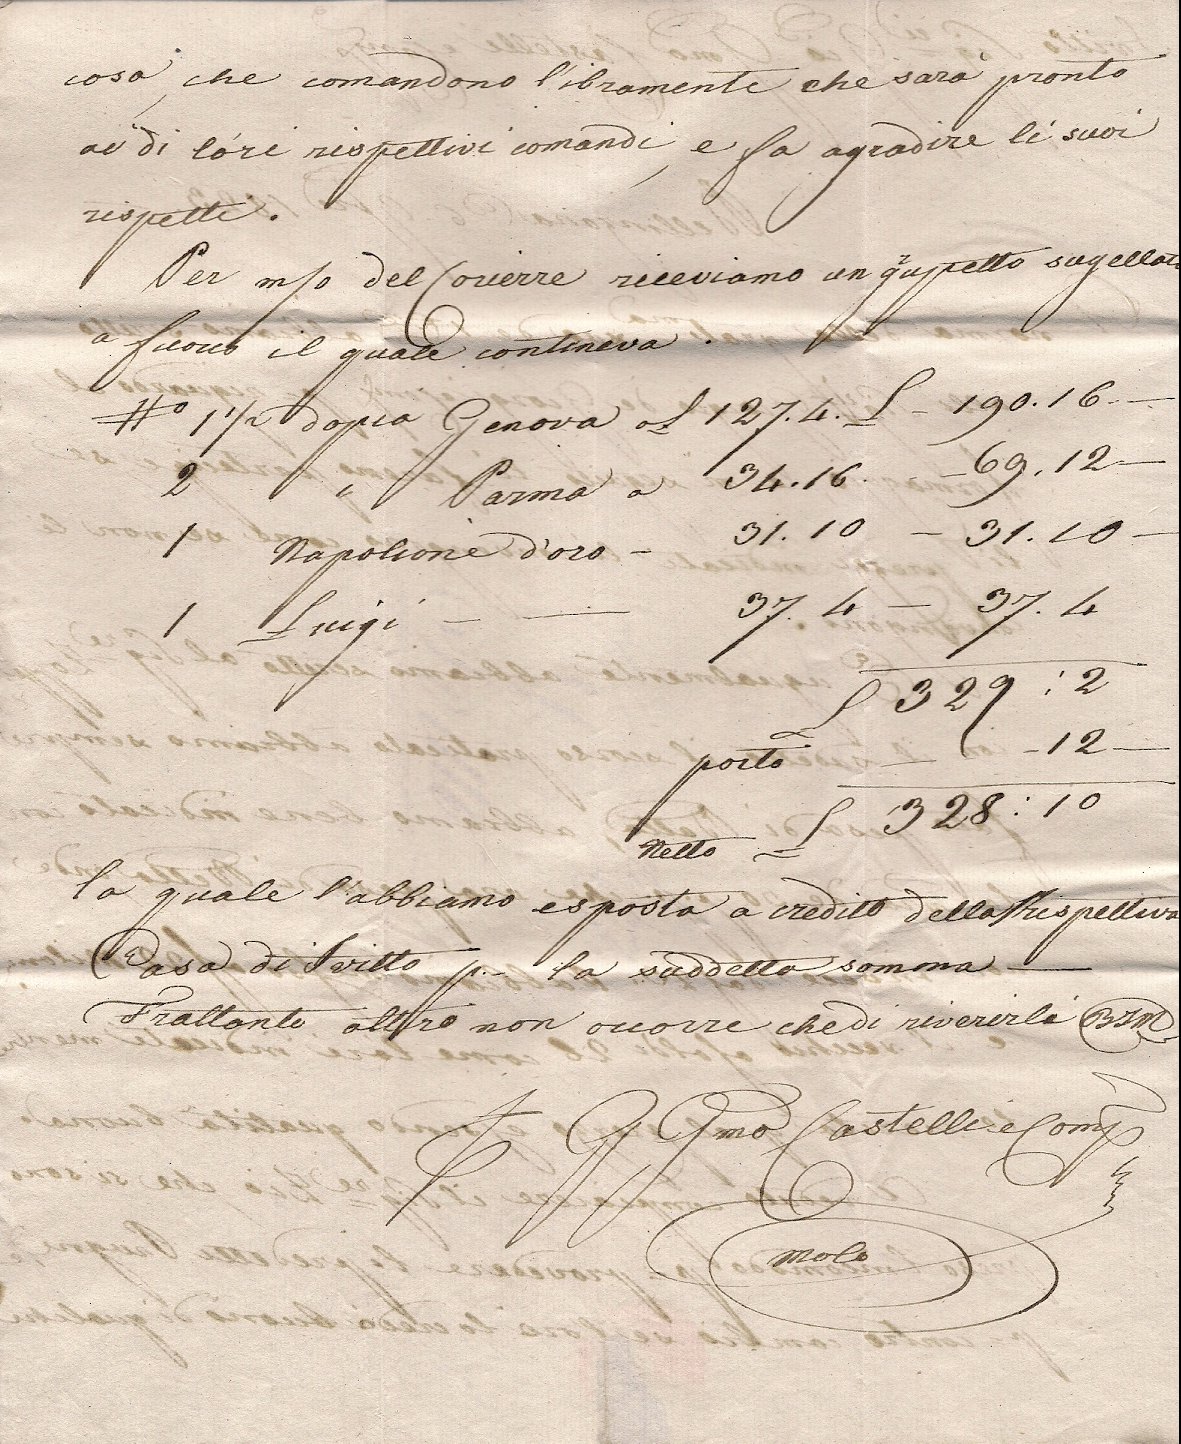 cosa, che comandono libramente che sarà pronto
ai di lóri rispettivi comandi, e fa agradire li suoi
rispetti.
Per m/o del Corierre riceviamo un gruppetto sugellato
a fuoco il quale contineva.
No 1 1/2 dopia Genova a £ 127.4. £ - 190.16.—
2 " Parma a 34.16. - 69.12—
1 Napolione d'oro - 31.10 - 31.10 -
1 Luigi - — 37.4 — 37.4
£ 329:2
porto - 12 —
Netto £ 328:10
la quale l'abbiamo esposta a credito della Rispettiva
Casa di Svitto p.- la suddetta somma —
Frattanto altro non ocorre che di riverirla
Gmo Castelli e Comp
Molo